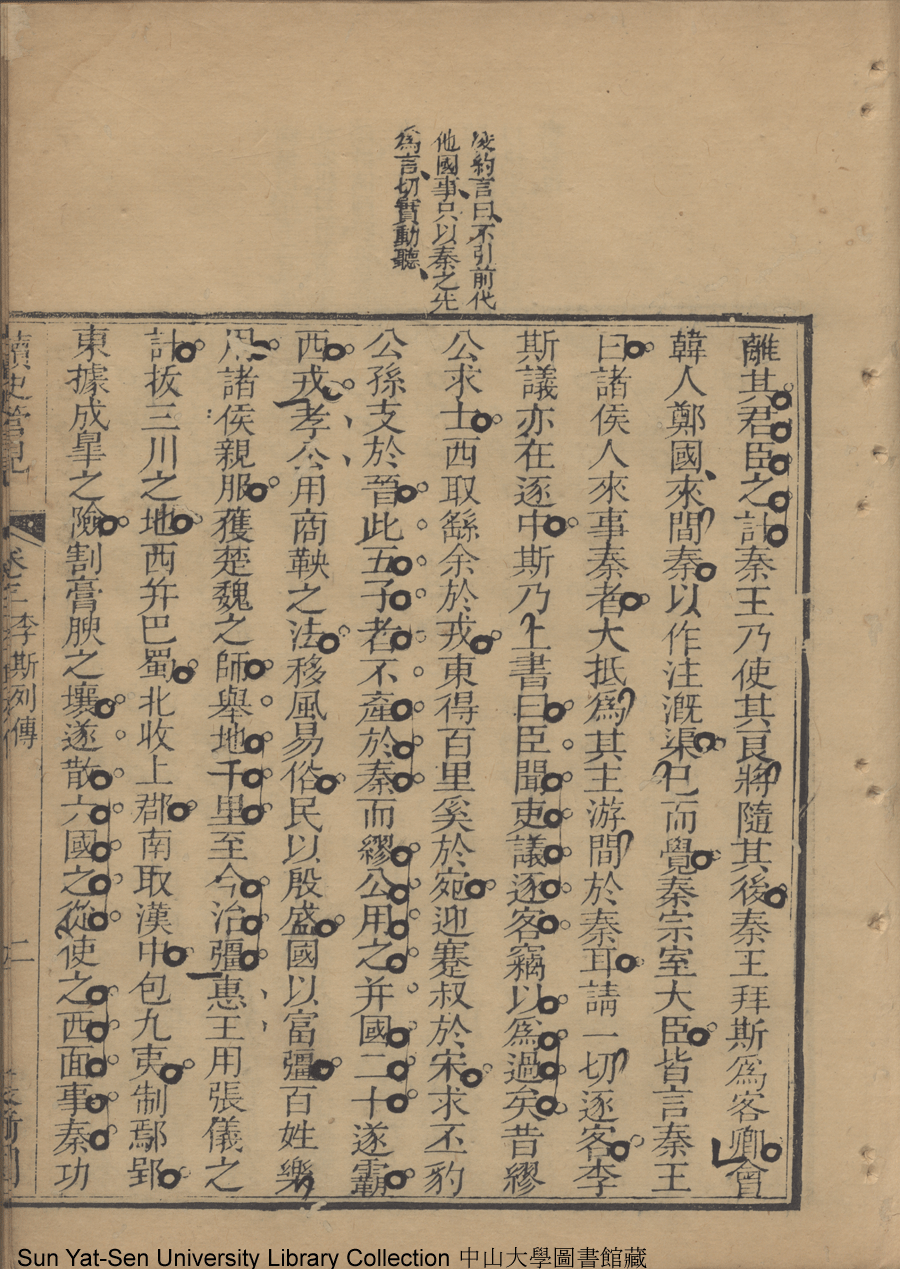 約言曰不引前代
他國事只以秦之先
為言切實動聽
離其君臣之計秦王乃使其良將隨其後秦王拜斯爲客卿會
韓人鄭國來間秦以作注漑渠已而覺秦宗室大臣皆言秦王
曰諸侯人來事秦者大抵爲其主游間於秦耳請一切逐客李
斯議亦在逐中斯乃上書曰臣聞吏議逐客竊以爲過矣昔繆
公求士西取繇余於戎東得百里奚於宛迎蹇叔於宋求丕豹
公孫支於晉此五子者不產於秦而繆公用之并國二十遂霸
西戎孝公用商鞅之法移風易俗民以殷盛國以富彊百姓樂
用諸侯親服獲楚魏之師舉地千里至今治彊惠王用張儀之
計拔三川之地西并巴蜀北收上郡南取漢中包九夷制鄢郢
東據成皐之險割膏腴之壤遂散六國之從使之西面事秦功
讀史管見
卷三
李斯列傳
二
Sun Yat-Sen University Library Collection 中山大學圖書館藏